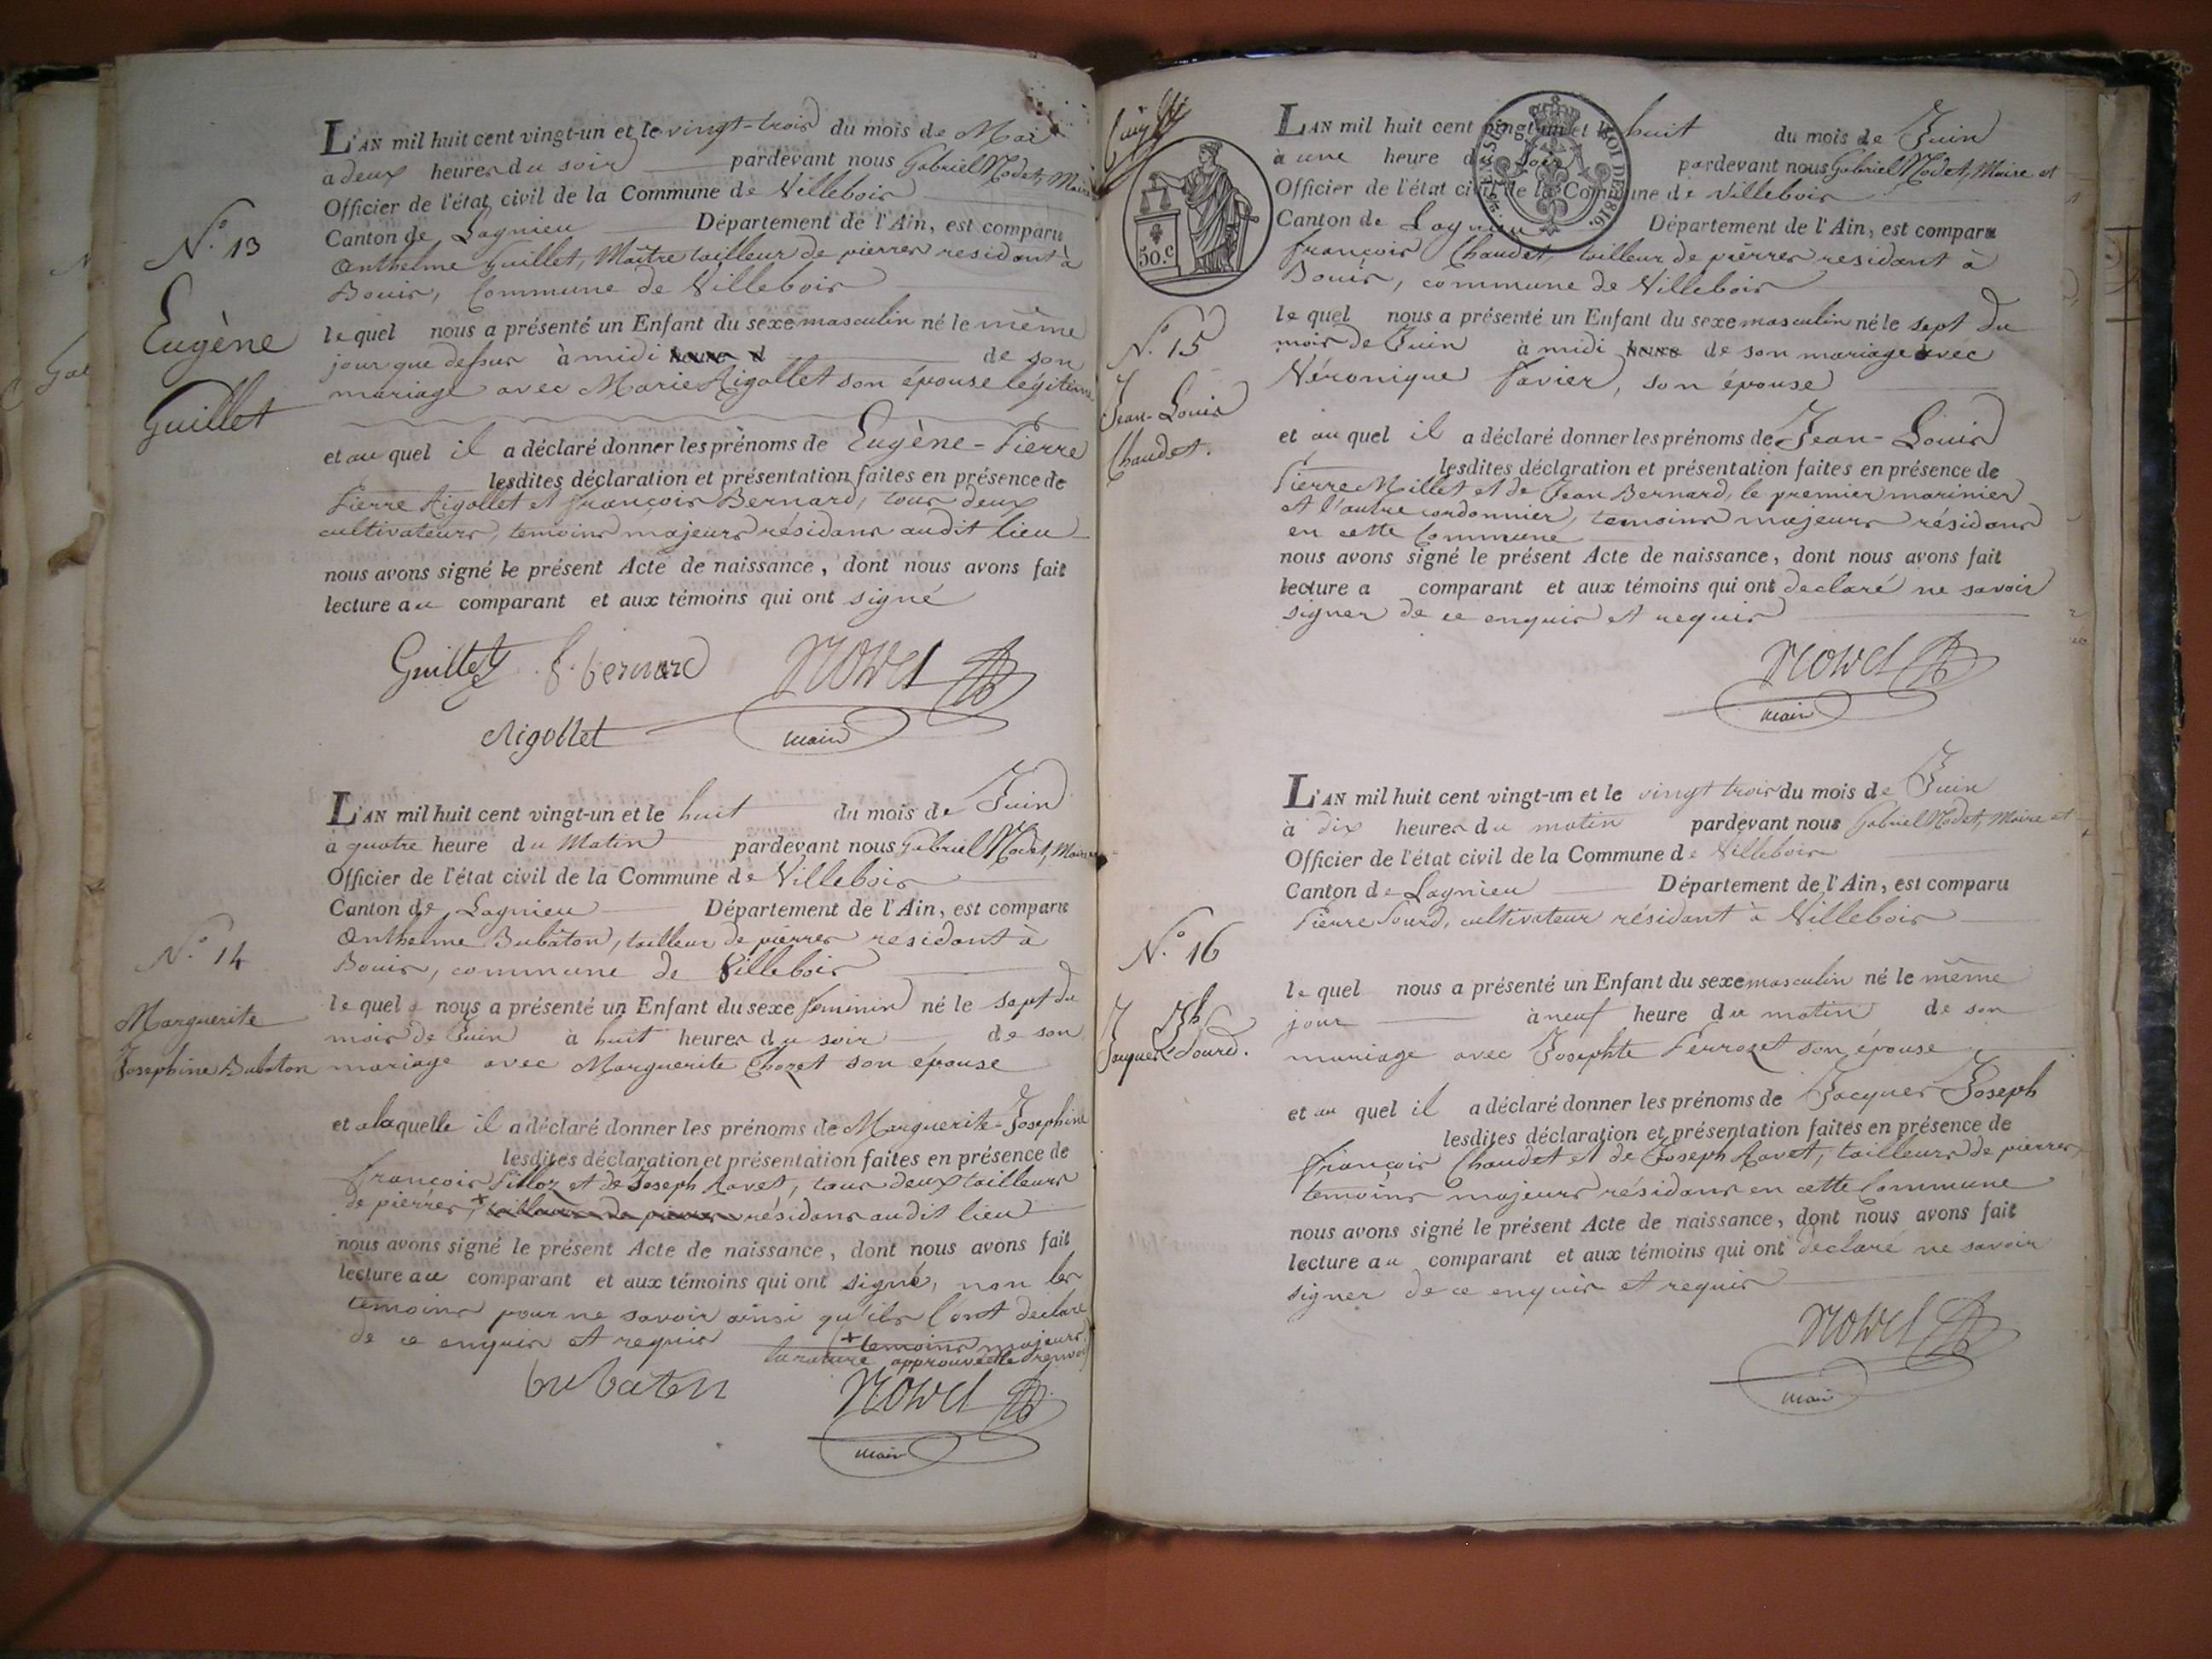 L'AN mil huit cent vingt-un et le vingt-trois du mois de Mai
a deux heures du soir pardevant nous Gabriel Modet, Maire
Officier de l'état civil de la Commune de Villebois
Canton de Lagnieu Département de l'Ain, est comparu
Anthelme Guillet, Maître tailleur de pierres residant à
Bouis, Commune de Villebois
N.o 13
Eugène
Guillet
le quel nous a présenté un Enfant du sexe masculin né le même
jour que dessus à midi heure d de son
mariage avec Marie Rigollet son épouse légitime
et au quel il a déclaré donner les prénoms de Eugène-Pierre
lesdites déclaration et présentation faites en présence de
Pierre Rigollet et françois Bernard, tous deux
cultivateurs, temoins majeurs résidans audit lieu
nous avons signé le présent Acte de naissance, dont nous avons fait
lecture au comparant et aux témoins qui ont signé
Guillet f. bernard
Rigollet maire
L'AN mil huit cent vingt-un et le huit du mois de Juin
à quatre heure du Matin pardevant nous Gabriel Modet, Maire
Officier de l'état civil de la Commune de Villebois
Canton de Lagnieu Département de l'Ain, est comparu
Anthelme Bubaton, tailleur de pierres residant à
Bouis, commune de Villebois
N.o 14
Marguerite
Josephine Bubaton
le quel nous a présenté un Enfant du sexe feminin né le sept du
mois de Juin à huit heures du soir de son
mariage avec Marguerite Chozet son épouse
et a laquelle il a déclaré donner les prénoms de Marguerite-Josephine
lesdites déclaration et présentation faites en présence de
françois Pilloz et de Joseph Ravet, tous deux tailleurs
de pierres, + tailleurs de pierres résidans audit lieu
nous avons signé le présent Acte de naissance, dont nous avons fait
lecture au comparant et aux témoins qui ont signé, non les
temoins pour ne savoir ainsi qu'ils l'ont declare
de ce enquis et requis (+ temoins majeurs.
la rature approuvée le renvoi)
bubaton
maire
50.c
L'AN mil huit cent vingt-un et le huit du mois de Juin
à une heure du soir pardevant nous Gabriel Modet, Maire et
Officier de l'état civil de la Commune de Villebois
Canton de Lagnieu Département de l'Ain, est comparu
françois Chaudet, tailleur de pierres residant à
Bouis, commune de Villebois
N.o 15
Jean-Louis
Chaudet.
le quel nous a présenté un Enfant du sexe masculin né le sept du
mois de Juin à midi heure de son mariage avec
Véronique favier, son épouse
et au quel il a déclaré donner les prénoms de Jean-Louis
lesdites déclaration et présentation faites en présence de
Pierre Millet et de Jean Bernard, le premier marinier
et l'autre cordonnier, temoins majeurs résidans
en cette Commune
nous avons signé le présent Acte de naissance, dont nous avons fait
lecture a comparant et aux témoins qui ont declaré ne savoir
signer de ce enquis et requis
maire
L'AN mil huit cent vingt-un et le vingt trois du mois de Juin
à dix heures du matin pardevant nous Gabriel Modet, Maire et
Officier de l'état civil de la Commune de Villebois
Canton de Lagnieu Département de l'Ain, est comparu
Pierre Sourd, cultivateur résidant à Villebois
N.o 16
J Jh
Jacques Sourd.
le quel nous a présenté un Enfant du sexe masculin né le même
jour à neuf heure du matin de son
mariage avec Josephte Perrozet son épouse
et au quel il a déclaré donner les prénoms de Jacques Joseph
lesdites déclaration et présentation faites en présence de
françois Chaudet et de Joseph Ravet, tailleurs de pierres,
temoins majeurs résidans en cette Commune
nous avons signé le présent Acte de naissance, dont nous avons fait
lecture au comparant et aux témoins qui ont declaré ne savoir
signer de ce enquis et requis
maire